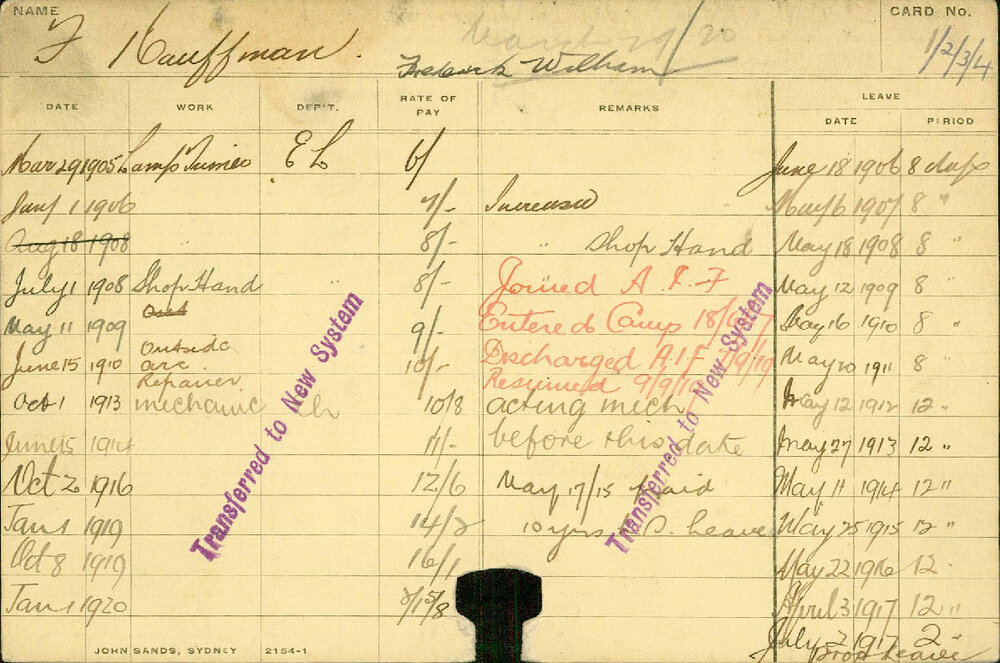 NAME
CARD No.
F Kauffman.
Frederick William
1/2/3/4
DATE WORK DEP'T. RATE OF PAY REMARKS LEAVE
DATE PERIOD
Mar 29 1905 Lamp Trimmer E L 6/ June 18 1906 8 days
Jany 1 1906 7/- Increased May 6 1907 8 "
Aug 18 1908 8/- " Shop Hand May 18 1908 8 "
July 1 1908 Shop Hand " 8/- Joined A.I.F May 12 1909 8
May 11 1909 9/- Entered Camp May 16 1910 8 "
Outside
June 15 1910 arc 10/- Discharged A.I.F May 20 1911 8 "
Repairer Resumed 9/9/19
Oct 1 1913 mechanic 10/8 acting mech May 12 1912 12 "
June 15 1914 11/- before this date May 27 1913 12 "
Oct 2 1916 12/6 May 17/15 May 11 1914 12 "
Jan 1 1919 14/2 10 yrs Leave May 25 1915 12 "
Oct 8 1919 16/1 May 22 1916 12
Jan 1 1920 April 3 1917 12 "
July 2 1917 2 "
Leave
Transferred to New System
Transferred to New System
JOHN SANDS, SYDNEY 2154-1